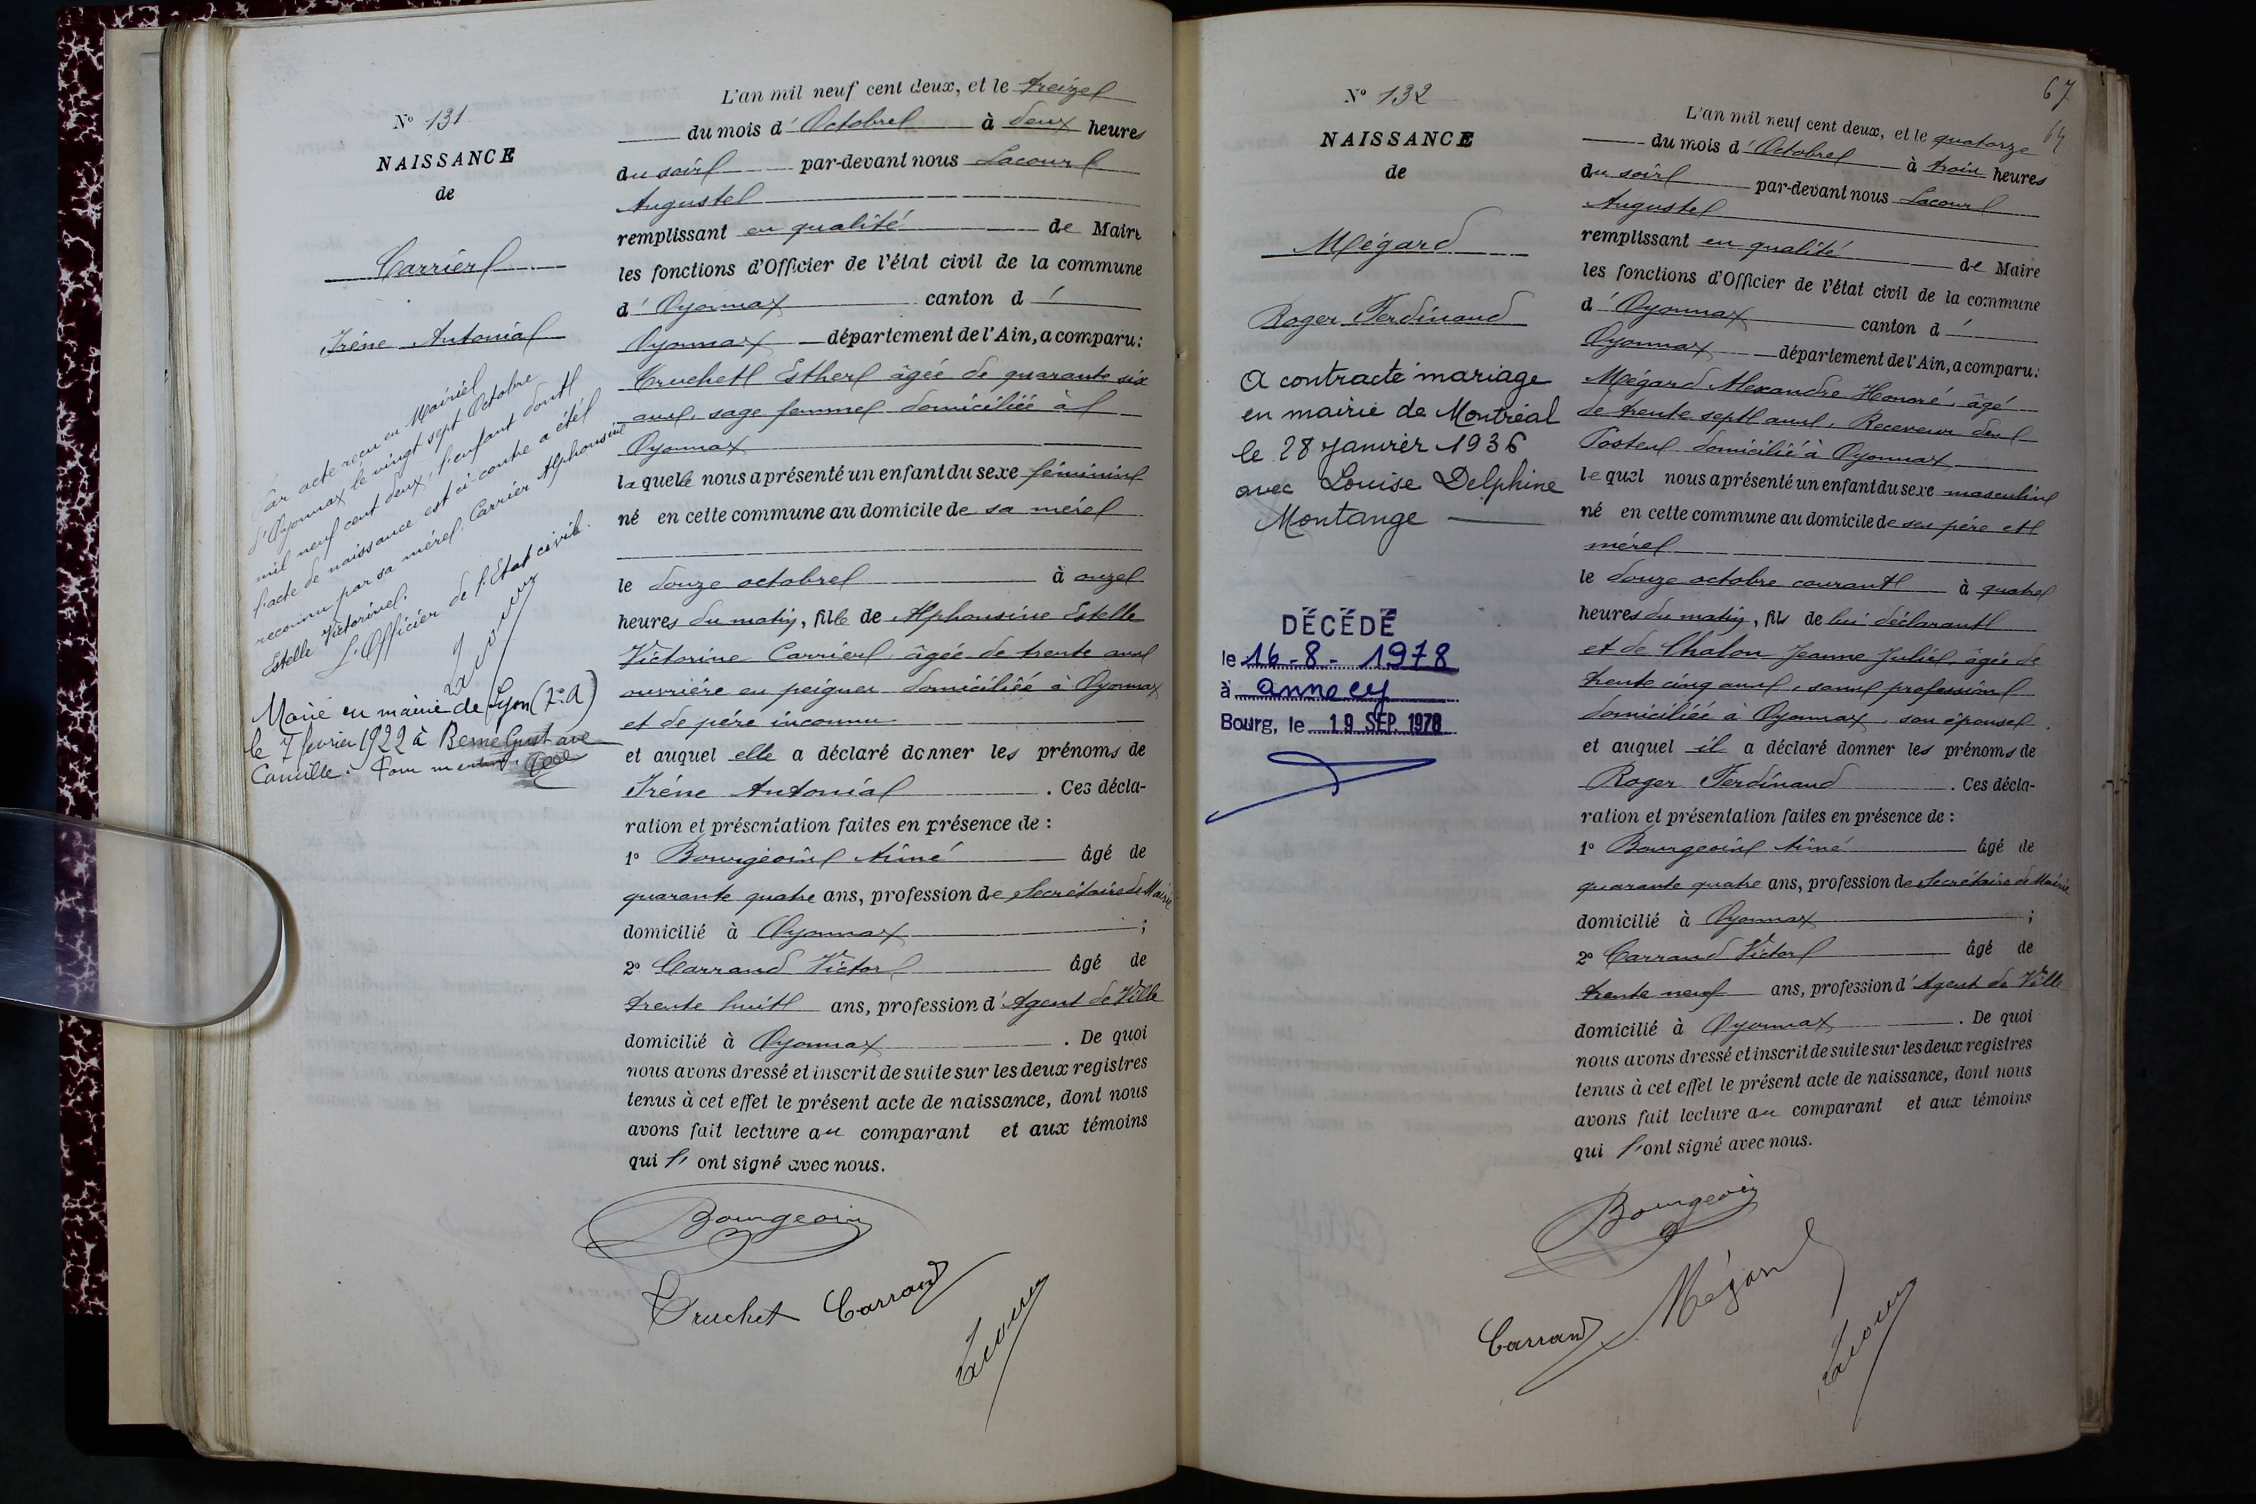 N° 131
NAISSANCE
de
Carrier
Irène Antonia
Par acte reçu en Mairie
d'Oyonnax le vingt sept Octobre
mil neuf cent deux, l'enfant dont
l'acte de naissance est ci-contre a été
reconnu par sa mère Carrier Alphonsine
Estelle Victorine.
L'Officier de l'Etat civil.
Lacour
Marié en mairie de Lyon
le 7 février 1922 à Gustave
Camille. Pour mention.
L'an mil neuf cent deux, et le treize
du mois d'Octobre à deux heures
du soir par-devant nous Lacour
Auguste
remplissant en qualité de Maire
les fonctions d'Officier de l'état civil de la commune
d'Oyonnax canton d'
Oyonnax département de l'Ain, a comparu:
Truchet Esther âgée de quarante six
ans, sage femme domiciliée à
Oyonnax
laquelle nous a présenté un enfant du sexe féminin
né en cette commune au domicile de sa mère
le douze octobre à onze
heures du matin, fille de Alphonsine Estelle
Victorine Carrier, âgée de trente ans
ouvrière en peignes domiciliée à Oyonnax
et de père inconnu
et auquel elle a déclaré donner les prénoms de
Irène Antonia. Ces décla-
ration et présentation faites en présence de:
1° Bourgeois Aimé âgé de
quarante quatre ans, profession de Secrétaire de Mairie
domicilié à Oyonnax;
2° Carrand Victor âgé de
trente huit ans, profession d'Agent de Ville
domicilié à Oyonnax. De quoi
nous avons dressé et inscrit de suite sur les deux registres
tenus à cet effet le présent acte de naissance, dont nous
avons fait lecture au comparant et aux témoins
qui l'ont signé avec nous.
Bourgeois
Truchet Carrand
Lacour
67
64
N° 132
NAISSANCE
de
Mégard
Roger Ferdinand
A contracté mariage
en mairie de Montréal
le 28 janvier 1936
avec Louise Delphine
Montange
DÉCÉDÉ
le 16-8-1978
à Annecy
Bourg, le 19 SEP. 1978
L'an mil neuf cent deux, et le quatorze
du mois d'Octobre à trois heures
du soir par-devant nous Lacour
Auguste
remplissant en qualité de Maire
les fonctions d'Officier de l'état civil de la commune
d'Oyonnax canton d'
Oyonnax département de l'Ain, a comparu:
Mégard Alexandre Honoré, âgé
de trente sept ans, Receveur des
Postes domicilié à Oyonnax
lequel nous a présenté un enfant du sexe masculin
né en cette commune au domicile de ses père et
mère
le douze octobre courant à quatre
heures du matin, fils de lui déclarant
et de Chalon Jeanne Julie, âgée de
trente cinq ans, sans profession
domiciliée à Oyonnax, son épouse
et auquel il a déclaré donner les prénoms de
Roger Ferdinand. Ces décla-
ration et présentation faites en présence de:
1° Bourgeois Aimé âgé de
quarante quatre ans, profession de Secrétaire de Mairie
domicilié à Oyonnax;
2° Carrand Victor âgé de
trente neuf ans, profession d'Agent de Ville
domicilié à Oyonnax. De quoi
nous avons dressé et inscrit de suite sur les deux registres
tenus à cet effet le présent acte de naissance, dont nous
avons fait lecture au comparant et aux témoins
qui l'ont signé avec nous.
Bourgeois
Carrand Mégard
Lacour